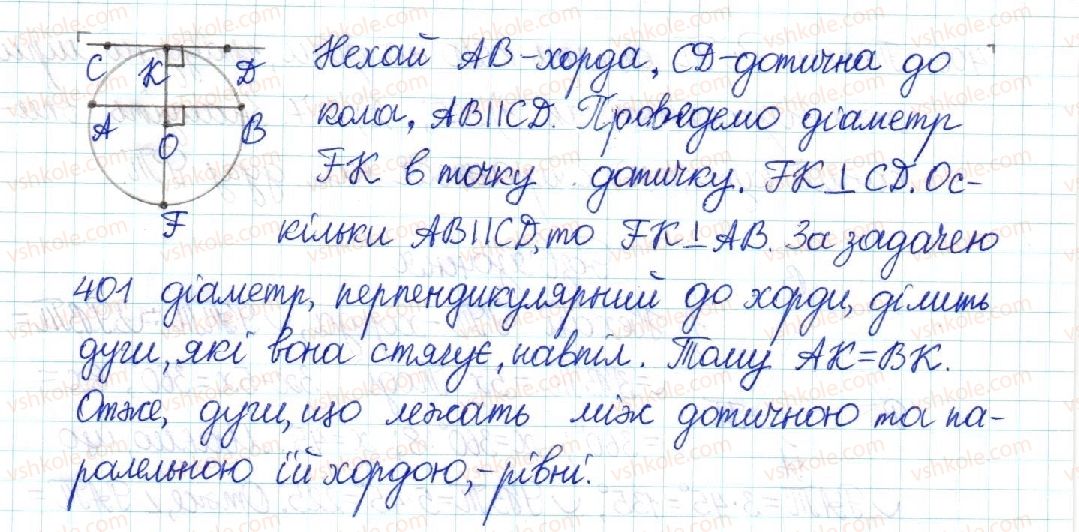 C K D
A O B
F
Нехай AB-хорда, CD-дотична до
кола, AB||CD. Проведемо діаметр
FK в точку дотичку. FK⊥CD. Ос-
кільки AB||CD, то FK⊥AB. За задачею
401 діаметр, перпендикулярний до хорди, ділить
дуги, які вона стягує, навпіл. Тому AK=BK.
Отже, дуги, що лежать між дотичною та па-
ралельною їй хордою, - рівні.